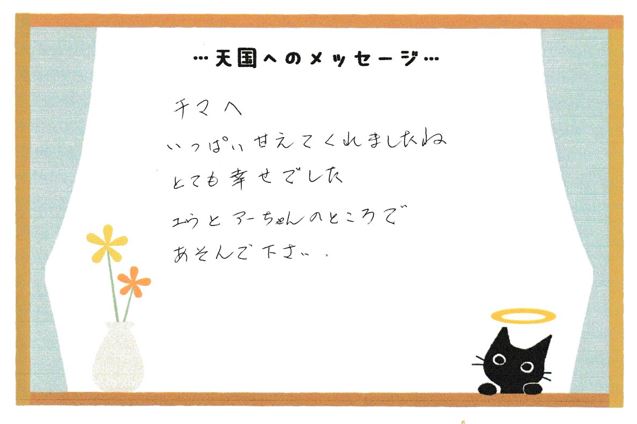 …天国へのメッセージ…
チマへ
いっぱい甘えてくれましたね
とても幸せでした
アーちゃんのところで
あそんで下さい.